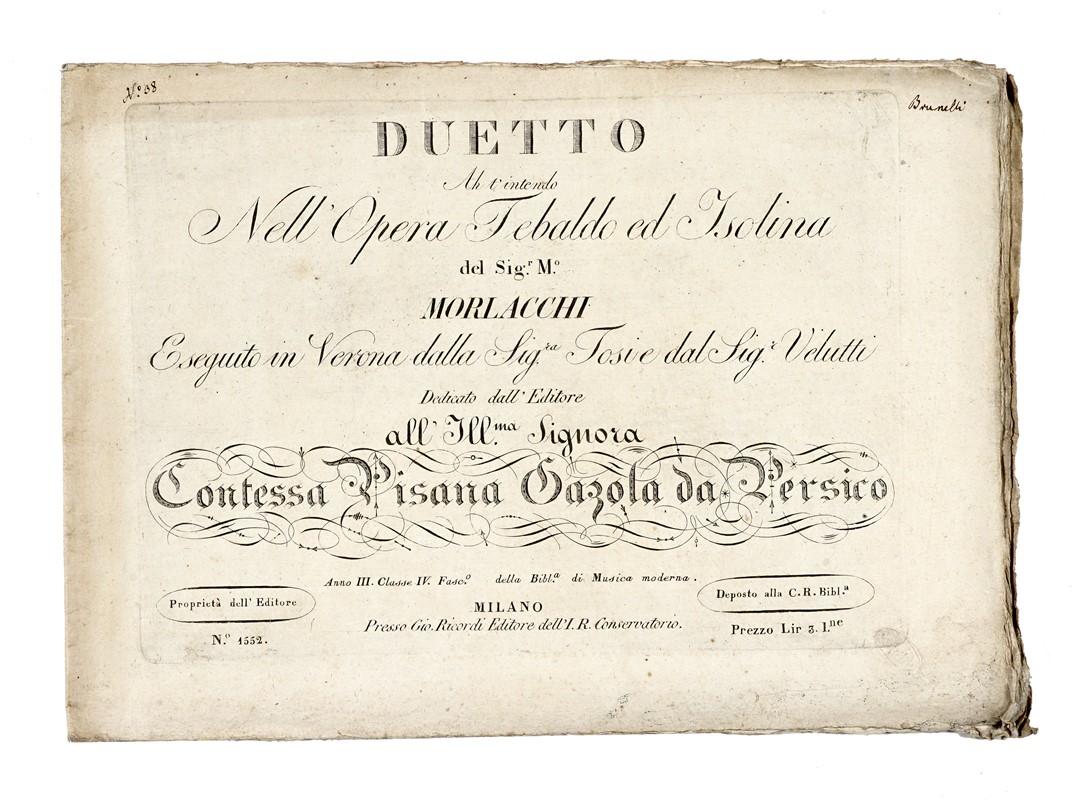 N.º 38
Brunelli
DUETTO
Ah t'intendo
Nell'Opera Tebaldo ed Isolina
del Sig.r M.o
MORLACCHI
Eseguito in Verona dalla Sig.ra Tosi e dal Sig.r Velutti
Dedicato dall'Editore
all'Ill.ma Signora
Contessa Pisana Gazola da Persico
Anno III. Classe IV. Fasc.o della Bibl.a di Musica moderna.
Proprietà dell'Editore
N.o 1552.
MILANO
Presso Gio. Ricordi Editore dell'I. R. Conservatorio.
Deposto alla C. R. Bibl.a
Prezzo Lir 3. I.ne